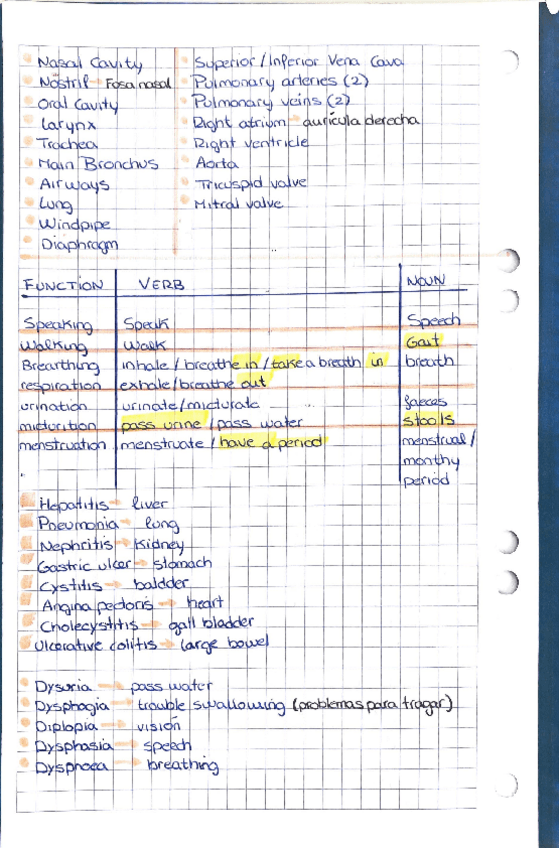 Nasal Cavity
Nostril Fosa nasal
Oral Cavity
Larynx
Trachea
Main Bronchus
Airways
Lung
Windpipe
Diaphragm
Superior/Inferior Vena Cava
Pulmonary arteries (2)
Pulmonary veins (2)
Right atrium aurícula derecha
Right ventricle
Aorta
Tricuspid valve
Mitral valve
FUNCTION VERB NOUN
Speaking Speak Speech
Walking Walk Gait
Brearthing inhale / breathe in / take a breath in breath
respiration exhale/breathe out
urination urinate/micturate faeces
micturition pass urine / pass water stools
menstruation menstruate / have a period menstrual/
monthy
period
Hepatitis → liver
Pneumonia → lung
Nephritis → Kidney
Gastric ulcer → stomach
Cystitis → baldder
Angina pectoris → heart
Cholecystitis → gall bladder
Ulcerative colitis → large bowel
Dysuria → pass water
Dysphagia → trouble swallowing (problemas para tragar)
Diplopia → vision
Dysphasia → speech
Dyspnoea → breathing